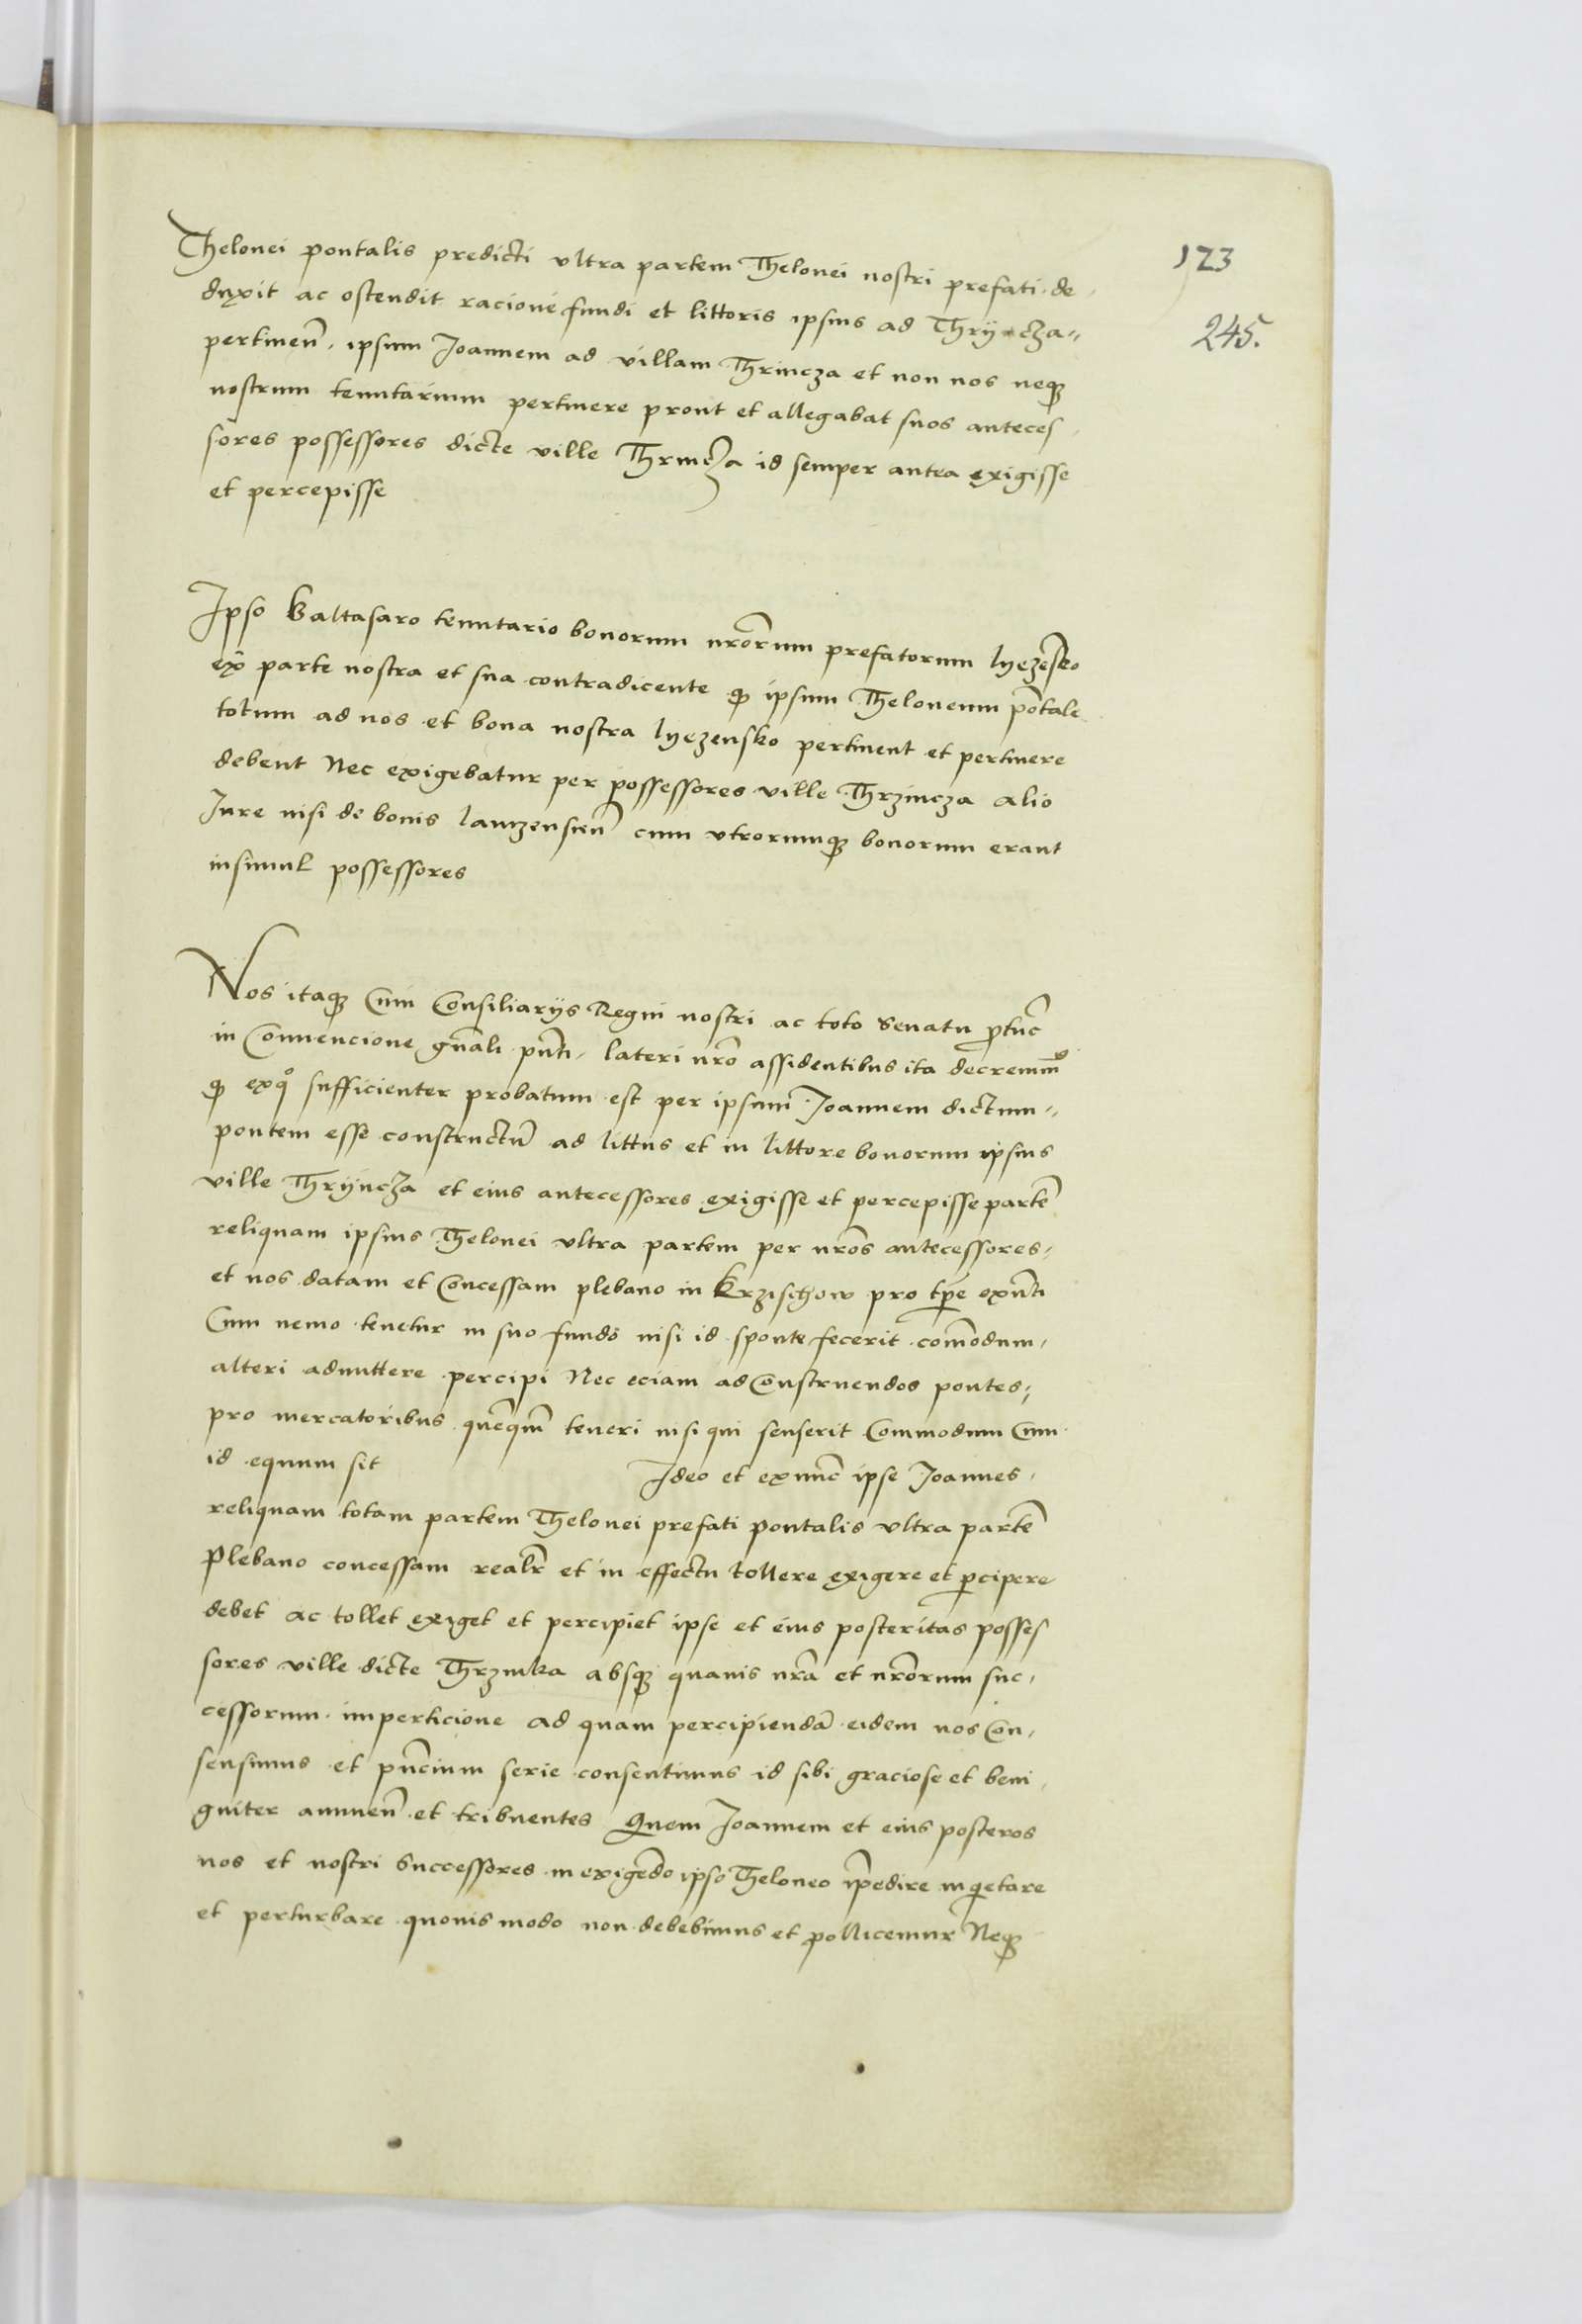 123
245.
Thelonei pontalis predicti vltra partem Thelonei nostri prefati de
duxit ac ostendit racione fundi et littoris ipsius ad Thryncza
pertineñ. ipsum Joannem ad villam Thrincza et non nos neqꝫ
nostrum tenutarium pertinere prout et allegabat suos anteces
sores possessores dicte ville Thrincza id semper antea exigisse
et percepisse
Ipso Baltasaro tenutario bonorum nr̃orum prefatorum lyezensko
ex parte nostra et sua contradicente ꝙ ipsum Theloneum põtale
totum ad nos et bona nostra lyezensko pertinent et pertinere
debent Nec exigebatur per possessores ville Thrzincza alio
Jure nisi de bonis lanczensień cum vtrorumqꝫ bonorum erant
insimul possessores
Nos itaqꝫ Cum Consiliarijs Regni nostri ac toto Senatu ꝓtũc
in Conuencione gñali pñti. lateri nr̃o assidentibus ita decreuimꝰ
ꝙ exqº sufficienter probatum est per ipsum Joannem dictum
pontem esse constructũ ad littus et in littore bonorum ipsius
ville Thryncza et eius antecessores exigisse et percepisse partẽ
reliquam ipsius Thelonei vltra partem per nr̃os antecessores
et nos datam et Concessam plebano in Krzischow pro tp̃e exñti
Cum nemo tenetur in suo fundo nisi id sponte fecerit com̃odum
alteri admittere percipi Nec eciam ad Construendos pontes
pro mercatoribus quẽqm̃ teneri nisi qui senserit Commodum Cum
id equum sit Ideo et exnunc ipse Joannes
reliquam totam partem Thelonei prefati pontalis vltra partẽ
Plebano concessam realr̃ et in effectu tollere exigere et ꝑcipere
debet ac tollet exiget et percipiet ipse et eius posteritas posses
sores ville dicte Thrzinka absqꝫ quauis nr̃a et nr̃orum suc
cessorum imperticione ad quam percipiendã eidem nos Con
sensimus et pñcium serie consentimus id sibi graciose et beni
gniter annueñ et tribuentes Quem Joannem et eius posteros
nos et nostri Successores in exigẽdo ipso Theloneo ĩpedire inqietare
et perturbare quouis modo non debebimus et pollicemur Neqꝫ